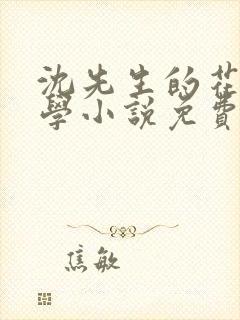 沈先生的
學小說免費
焦敏